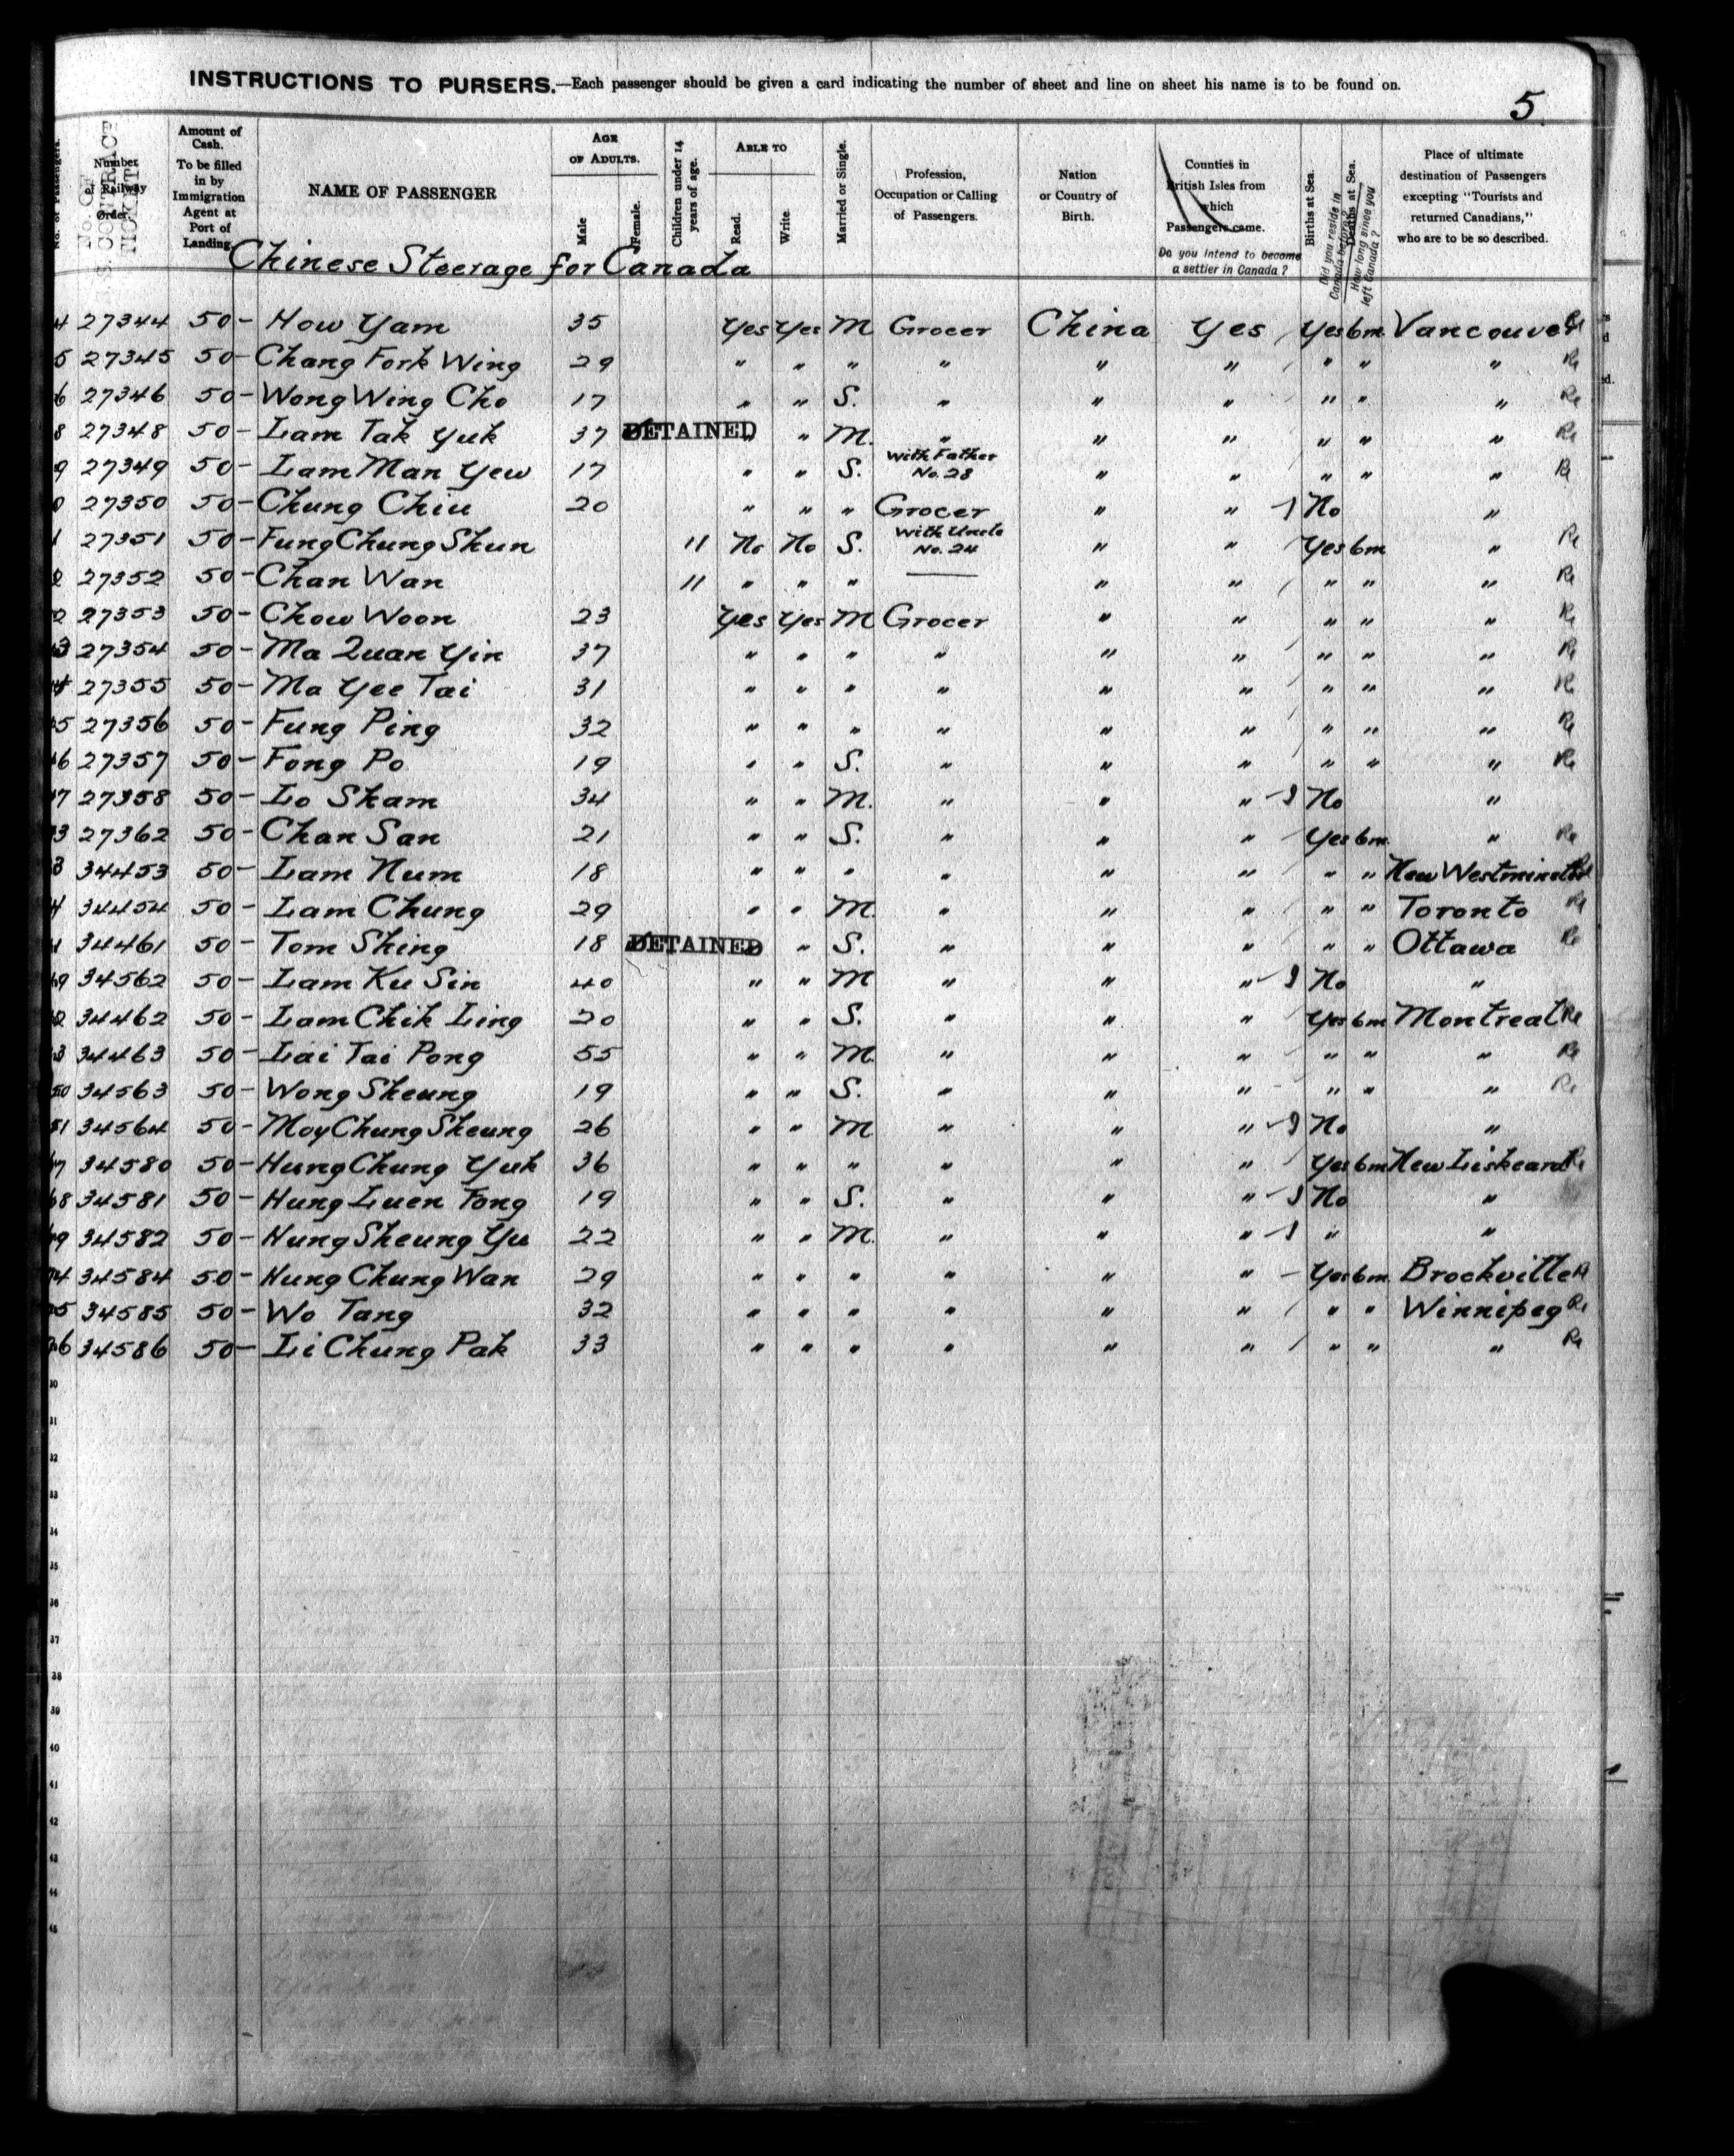 INSTRUCTIONS TO PURSERS.—Each passenger should be given a card indicating the number of sheet and line on sheet his name is to be found on.
5.
No. of Passengers.
Number of Railway Order.
No. OF C.S. CONTRACT TICKET
Amount of Cash. To be filled in by Immigration Agent at Port of Landing
NAME OF PASSENGER
AGE OF ADULTS. Male Female.
Children under 14 years of age.
ABLE TO Read. Write.
Married or Single.
Profession, Occupation or Calling of Passengers.
Nation or Country of Birth.
Counties in British Isles from which Passengers came.
Do you intend to become a settler in Canada?
Births at Sea.
Did you reside in Canada before?
Deaths at Sea.
How long since you left Canada?
Place of ultimate destination of Passengers excepting "Tourists and returned Canadians," who are to be so described.
Chinese Steerage for Canada
4 27344 50- How Yam 35 Yes Yes M Grocer China Yes Yes 6m Vancouver Re
5 27345 50- Chang Fork Wing 29 " " " " " " " " " Re
6 27346 50- Wong Wing Cho 17 " " S. " " " " " " Re
8 27348 50- Lam Tak Yuk 37 DETAINED " " M. " " " " " " Re
9 27349 50- Lam Man Yew 17 " " S. With Father No. 28 " " " " " Re
0 27350 50- Chung Chiu 20 " " " Grocer " " No "
1 27351 50- Fung Chung Shun 11 No No S. With Uncle No. 24 " " Yes 6m " Re
2 27352 50- Chan Wan 11 " " " — " " " " " Re
2 27353 50- Chow Woon 23 Yes Yes M Grocer " " " " " Re
3 27354 50- Ma Quan Yin 37 " " " " " " " " " Re
4 27355 50- Ma Yee Tai 31 " " " " " " " " " Re
5 27356 50- Fung Ping 32 " " " " " " " " " Re
6 27357 50- Fong Po 19 " " S. " " " " " " Re
7 27358 50- Lo Sham 34 " " M. " " " No "
3 27362 50- Chan San 21 " " S. " " " Yes 6m " Re
3 34453 50- Lam Num 18 " " " " " " " " New Westminster Re
4 34454 50- Lam Chung 29 " " M. " " " " " Toronto Re
1 34461 50- Tom Shing 18 DETAINED " S. " " " " " Ottawa Re
49 34562 50- Lam Ku Sin 40 " " M " " " No "
2 34462 50- Lam Chik Ling 20 " " S. " " " Yes 6m Montreal Re
3 34463 50- Lai Tai Pong 55 " " M. " " " " " " Re
50 34563 50- Wong Sheung 19 " " S. " " " " " " Re
51 34564 50- Moy Chung Sheung 26 " " M " " " No "
67 34580 50- Hung Chung Yuk 36 " " " " " " Yes 6m New Liskeard Re
68 34581 50- Hung Luen Fong 19 " " S. " " " No "
69 34582 50- Hung Sheung Yu 22 " " M. " " " " "
74 34584 50- Hung Chung Wan 29 " " " " " " Yes 6m Brockville R
75 34585 50- Wo Tang 32 " " " " " " " " Winnipeg Re
76 34586 50- Li Chung Pak 33 " " " " " " " " " Re
30
31
32
33
34
35
36
37
38
39
40
41
42
43
44
45